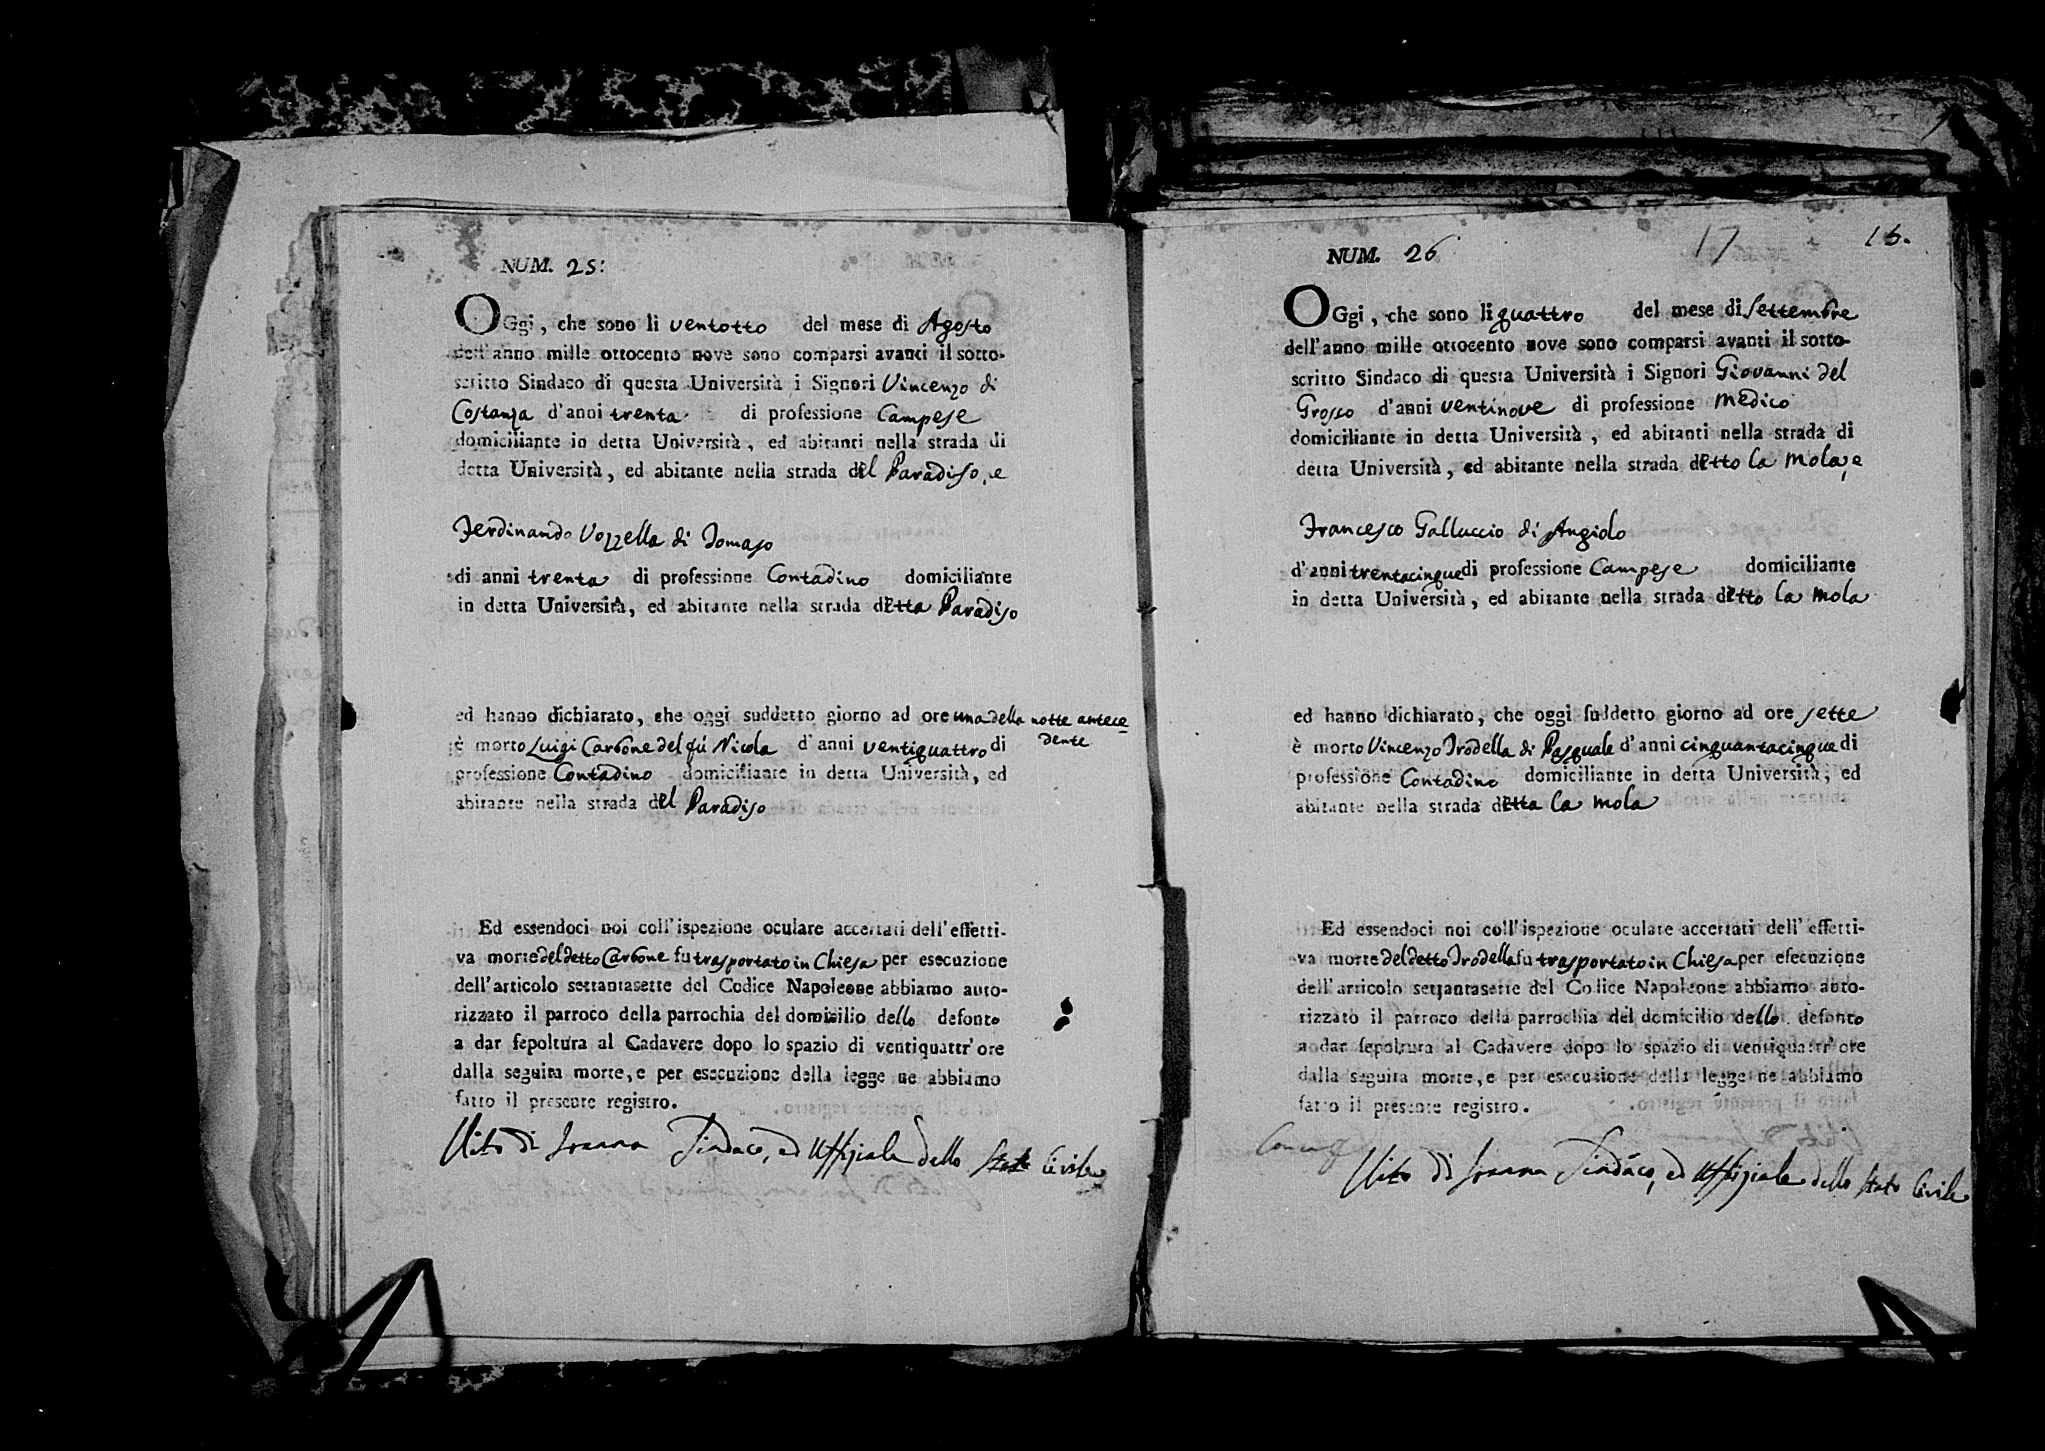 NUM. 25:
OGgi, che sono li ventotto del mese di Agosto
dell'anno mille ottocento nove sono comparsi avanti il sotto-
scritto Sindaco di questa Università i Signori Vincenzo di
Costanza d'anni trenta di professione Campese
domiciliante in detta Università, ed abitanti nella strada di
detta Università, ed abitante nella strada del Paradiso, e
Ferdinando Vozzella di Tomaso
di anni trenta di professione Contadino domiciliante
in detta Università, ed abitante nella strada detta Paradiso
ed hanno dichiarato, che oggi suddetto giorno ad ore una della notte antece
dente
è morto Luigi Carbone del fú Nicola d'anni ventiquattro di
professione Contadino domiciliante in detta Università, ed
abitante nella strada del Paradiso
Ed essendoci noi coll'ispezione oculare accertati dell'effetti-
va morte del detto Carbone fu trasportato in Chiesa per esecuzione
dell'articolo settantasette del Codice Napoleone abbiamo auto-
rizzato il parroco della parrochia del domisilio dello defonto
a dar sepoltura al Cadavere dopo lo spazio di ventiquattr'ore
dalla seguita morte, e per esecuzione della legge ne abbiamo
fatto il presente registro.
Vito di Ioanna Sindaco, ed Uffiziale dello Stato Civile
17 15.
NUM. 26
OGgi, che sono li quattro del mese di Settembre
dell'anno mille ottocento nove sono comparsi avanti il sotto-
scritto Sindaco di questa Università i Signori Giovanni del
Grosso d'anni ventinove di professione Medico
domiciliante in detta Università, ed abitanti nella strada di
detta Università, ed abitante nella strada detto la Mola, e
Francesco Galluccio di Angiolo
d'anni trentacinque di professione Campese domiciliante
in detta Università, ed abitante nella strada detto la Mola
ed hanno dichiarato, che oggi suddetto giorno ad ore sette
è morto Vincenzo Trodella di Pasquale d'anni cinquantacinque di
professione Contadino domiciliante in detta Università, ed
abitante nella strada detta la Mola
Ed essendoci noi coll'ispezione oculare accertati dell'effetti-
va morte del detto Trodella fu trasportato in Chiesa per esecuzione
dell'articolo settantasette del Codice Napoleone abbiamo auto-
rizzato il parroco della parrochia del domicilio dello defonto
a dar sepoltura al Cadavere dopo lo spazio di ventiquattr'ore
dalla seguita morte, e per esecuzione della legge ne abbiamo
fatto il presente registro.
Vito di Ioanna Sindaco, ed Uffiziale dello Stato Civile